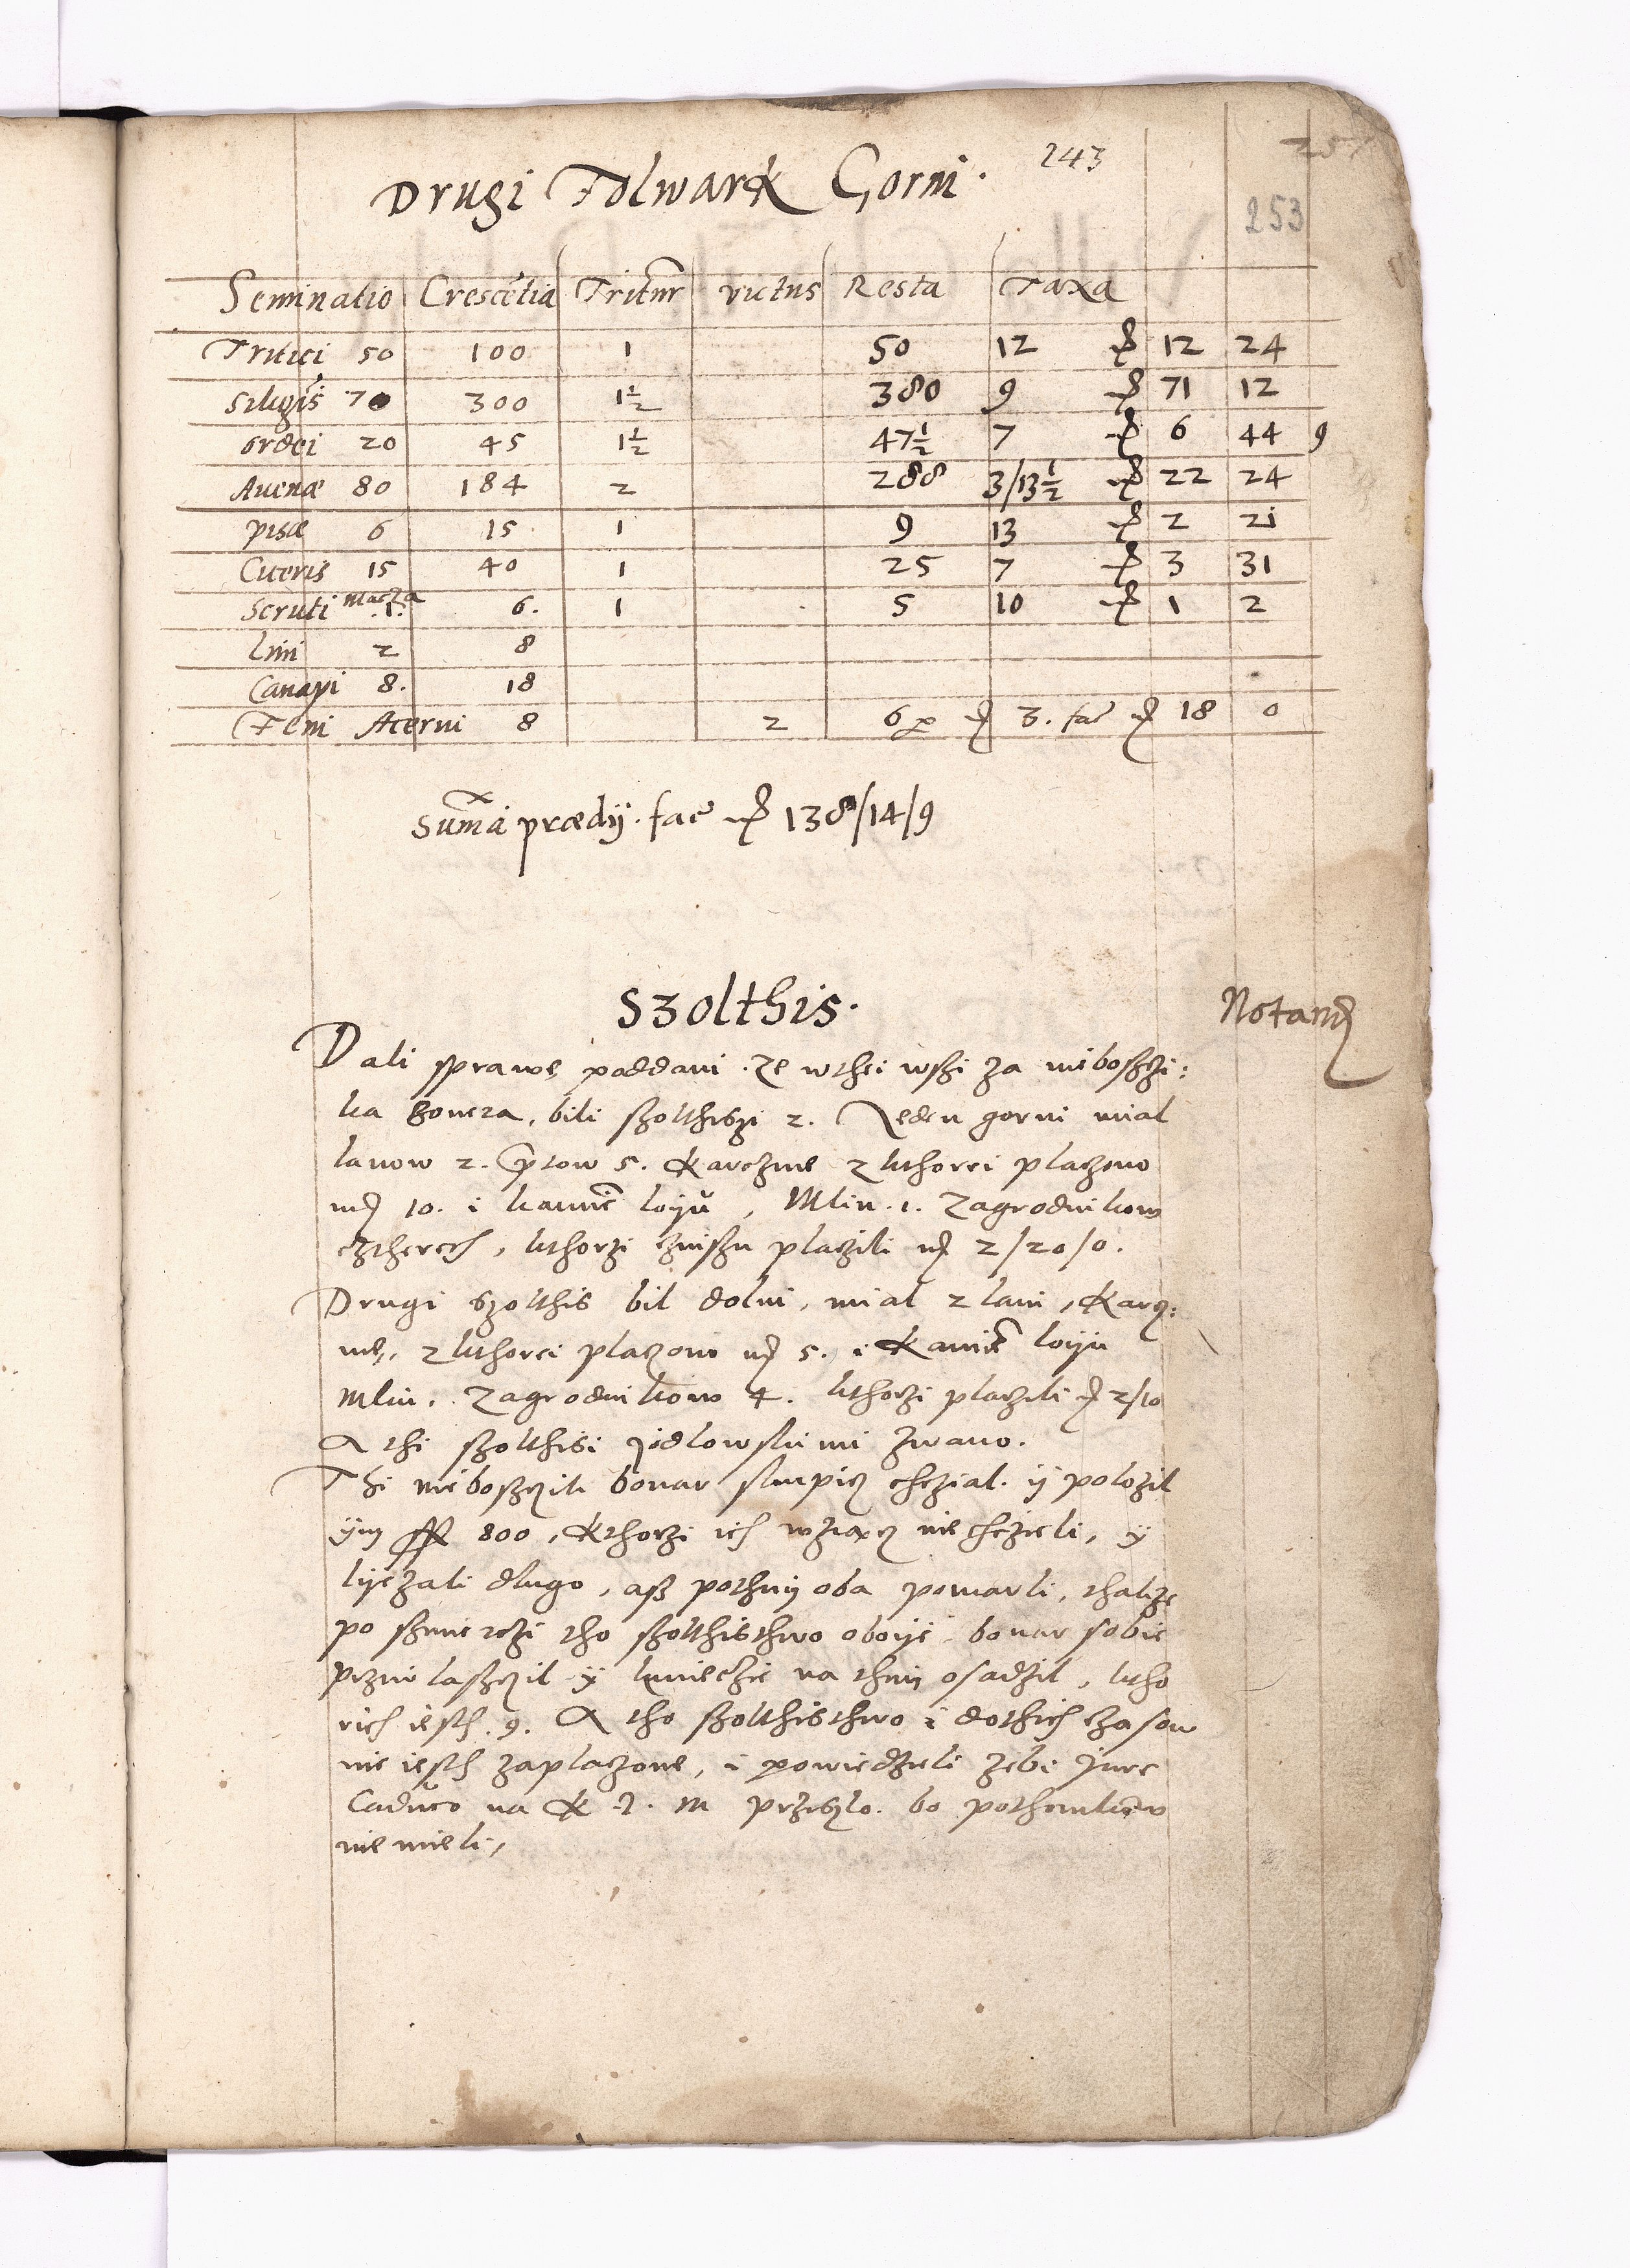 243
253
Drugi Folwark Gorni.
Seminatio Crescētia Triturͬ victus Resta Taxa
Tritici 50 100 1 50 12 mͬ 12 24
Siliginis 70 300 1½ 380 9 mͬ 71 12
ordei 20 45 1½ 47½ 7 mͬ 6 44 9
Auenæ 80 184 2 288 3/13½ mͬ 22 24
pisæ 6 15 1 9 13 mͬ 2 21
Ciceris 15 40 1 25 7 mͬ 3 31
Scruti macza 1. 6. 1 5 10 mͬ 1 2
lini 2 8
Canapi 8. 18
Feni Acerui 8 2 6 p mͬ 3. fac mͬ 18 0
Sum̄a prædij. fac mͬ 138/14/9
Szolthis.
Notand
Dali sprawę poddani. ze wthei wszi za nieboszczi:
ka Bonera, bili szolthiszi 2. Jeden gorni mial
lanow 2. Prtow 5. Karczme zkthorei placzono
mͬ 10. i kamiē loyu, Mlin. 1. Zagrodnikow
cztherech, kthorzi czinszu placzili mͬ 2/20/0.
Drugi Szolthis bil dolni, mial 2 lani, Karcz:
mę, zkthorei placzono mͬ 5. i Kamiē loyu
Mlin. Zagrodnikow 4. kthorzi placzili mͬ 2/10
A thi szolthisi Jodlowskimi zwano.
Thi nieboszczik bonar skupicz chczial. ÿ polozil
ÿm ff 800, Kthorzi ich wziącz niechczieli, ÿ
lyezali dlugo, asz pothim oba pomarli, thakze
po szmierczi tho szolthisthwo oboyie bonar sobie
prziwlaszczil ÿ kmieczie na thim osadzil, ktho
rich iesth. 9. A tho szolthisthwo i dothich czasow
nie iesth zaplaczone, i powiedzieli zebi Jure
Caduco na K. J. M przislo. bo pothomkow
nie mieli,